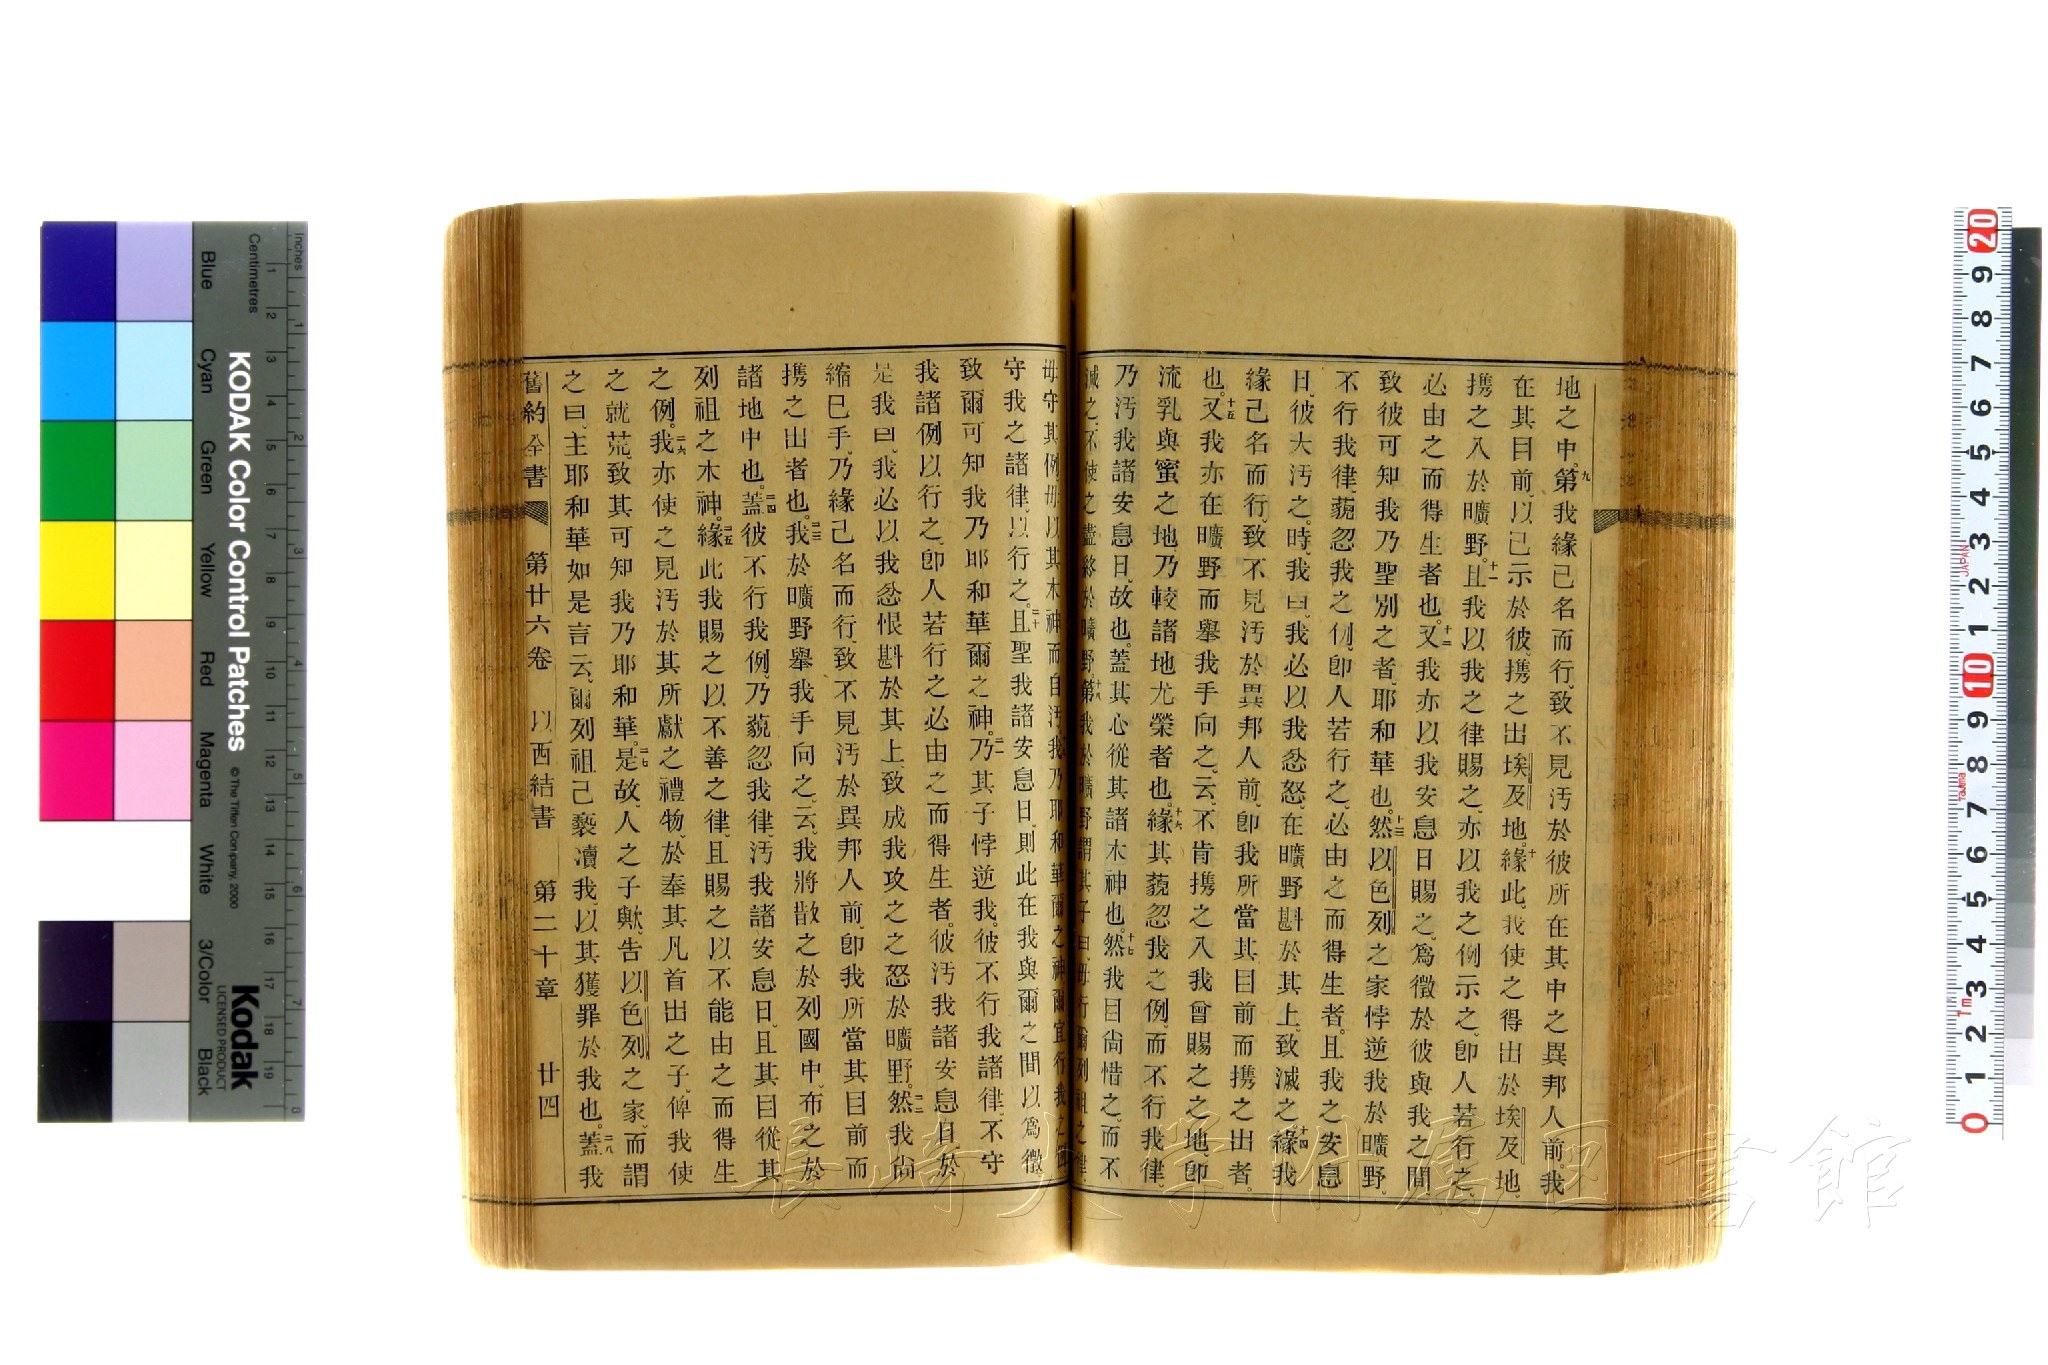 地之中。九第我緣己名而行、致不見汚於彼所在其中之異邦人前。我
在其目前、以己示於彼、携之出埃及地。十緣此、我使之得出於埃及地、
携之入於曠野。十一且我以我之律賜之、亦以我之例示之、卽人若行之、
必由之而得生者也。十二又我亦以我安息日賜之、爲徵於彼與我之間
致彼可知我乃聖別之者、耶和華也。十三然以色列之家悖逆我於曠野、
不行我律、藐忽我之例、卽人若行之、必由之而得生者。且我之安息
日、彼大汚之。時、我曰、我必以我忿怒、在曠野斟於其上、致滅之。十四緣我
緣己名而行、致不見汚於異邦人前、卽我所當其目前而携之出者。
也。十五又我亦在曠野而舉我手向之、云、不肯携之入我曾賜之之地、卽
流乳與蜜之地、乃較諸地尤榮者也。十六緣其藐忽我之例、而不行我律、
乃汚我諸安息日、故也。蓋其心從其諸木神也。十七然我目尙惜之、而不
滅之、不使之盡終於曠野。十八第我於曠野謂其子曰、毋行爾列祖之律、
毋守其例、毋以其木神而自汚。我乃耶和華爾之神、爾宜行我之
守我之諸律、以行之。二十且聖我諸安息日、則此在我與爾之間以爲徵
致爾可知我乃耶和華爾之神。二一乃其子悖逆我。彼不行我諸律、不守
我諸例以行之、卽人若行之必由之而得生者。彼汚我諸安息日、於
是我曰、我必以我忿恨斟於其上、致成我攻之之怒於曠野。二二然我尙
縮己手、乃緣己名而行、致不見汚於異邦人前、卽我所當其目前而
携之出者也。二三我於曠野舉我手向之、云、我將散之於列國中、布之於
諸地中也。二四蓋彼不行我例、乃藐忽我律、汚我諸安息日、且其目從其
列祖之木神。二五緣此我賜之以不善之律、且賜之以不能由之而得生
之例。二六我亦使之見汚於其所獻之禮物、於奉其凡首出之子、俾我使
之就荒、致其可知我乃耶和華。二七是故、人之子歟、告以色列之家、而謂
之曰、主耶和華如是言云、爾列祖己褻瀆我、以其獲罪於我也。二八蓋我
舊約全書 第廿六卷 以西結書 第二十章 廿四
KODAK Color Control Patches
© The Tiffen Company, 2000
Kodak
LICENSED PRODUCT
Inches
Centimetres
Blue Cyan Green Yellow Red Magenta White 3/Color Black
1 2 3 4 5 6 7 8 9 10 11 12 13 14 15 16 17 18 19
1 2 3 4 5 6 7 8
20 9 8 7 6 5 4 3 2 1 10 9 8 7 6 5 4 3 2 1 0
JAPAN
Tajima
1m
長崎大学附属図書館